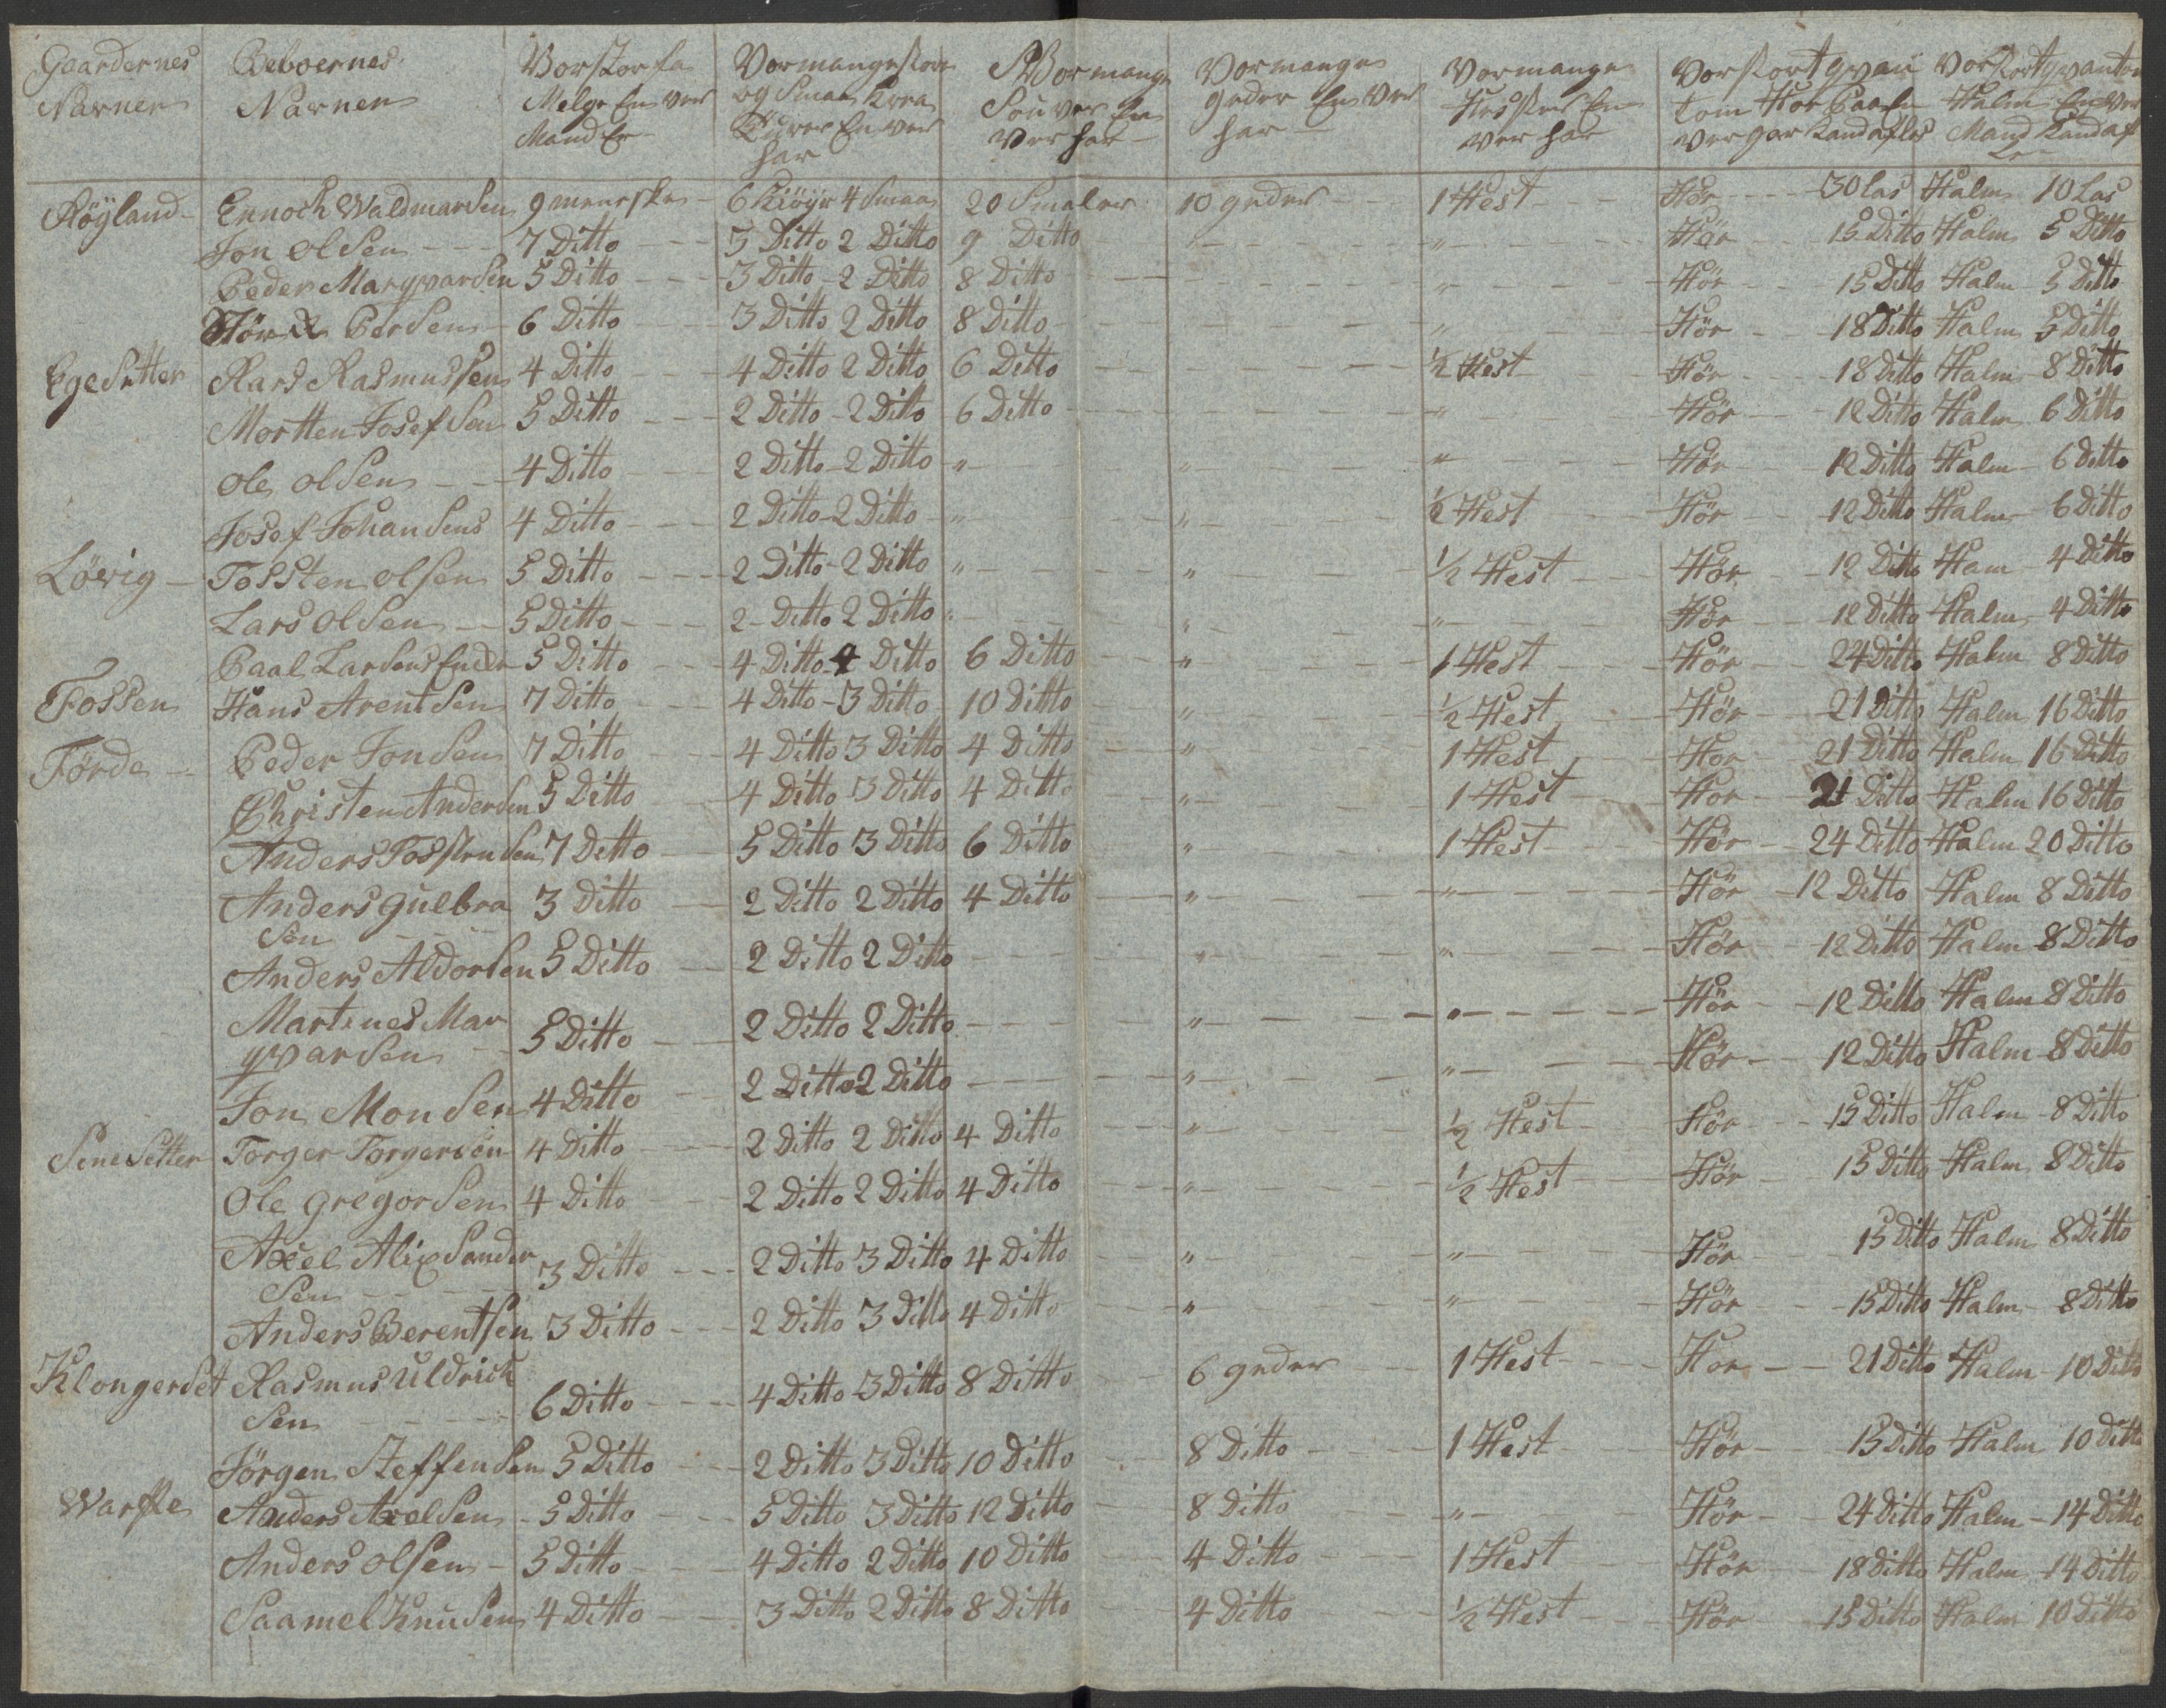 Gaardernes Navner | Beboernes Navner | Vor stor fa Melge En ver Mand Er | Vor mange store og Smaa Krea Turer En ver har | Vor mange Souver En ver har | Vor mange geder En ver har | Vor mange Hester En ver har | Vor stort qvan tom Hør Paa En ver gaar kand afles | Vor stort qvantom Halm En ver Mand kand af
Høyland - Ennoch Waldmarsen 9 menesker - 6 Kiøyr 4 Smaa 20 Smaler 10 geder - 1 Hest - Hør - 30 Las Halm 10 Las
Jon olsen - 7 Ditto - 3 Ditto 2 Ditto 9 Ditto - " - " - Hør - 15 Ditto Halm 5 Ditto
Peder Marqvarsen 5 Ditto - 3 Ditto - 2 Ditto 8 Ditto - " - Hør - 15 Ditto Halm - 5 Ditto
Persen - 6 Ditto - 3 Ditto 2 Ditto 8 Ditto - " - Hør - 18 Ditto Halm 5 Ditto
Egesetter Rasmussen 4 Ditto - 4 Ditto 2 Ditto 6 Ditto - 1/2 Hest - Hør - 18 Ditto Halm - 8 Ditto
Mortten Josefsen 5 Ditto - 2 Ditto - 2 Ditto 6 Ditto - " - Hør - 12 Ditto Halm 6 Ditto
Ole olsen - 4 Ditto - 2 Ditto - 2 Ditto " - " - " - Hør - 12 Ditto Halm - 6 Ditto
Josef Johansens 4 Ditto - 2 Ditto - 2 Ditto " - " - 1/2 Hest - Hør - 12 Ditto Halm - 6 Ditto
Løvig - Tossten olsen 5 Ditto - 2 Ditto - 2 Ditto " - " - 1/2 Hest - Hør - 12 Ditto Ham - 4 Ditto
Lars olsen - 5 Ditto - 2 - Ditto 2 Ditto " - " - " - Hør - 12 Ditto Halm - 4 Ditto
Paal Larsens Encke 5 Ditto - 4 Ditto - 4 Ditto 6 Ditto - " - 1 Hest - Hør - 24 Ditto Halm 8 Ditto
Fossen Hans Arentsen 7 Ditto - 4 Ditto - 3 Ditto 10 Ditto - " - 1/2 Hest - Hør - 21 Ditto Halm 16 Ditto
Førde - Peder Jonsen 7 Ditto - 4 Ditto 3 Ditto 4 Ditto - " - 1 Hest - Hor - 21 Ditto Halm 16 Ditto
Christen Andersen 5 Ditto - 4 Ditto 3 Ditto 4 Ditto - " - 1 Hest - Hor - 21 Ditto Halm 16 Ditto
Anders Tosstensen 7 Ditto - 5 Ditto 3 Ditto 6 Ditto - " - 1 Hest - Hør - 24 Ditto Halm 20 Ditto
Anders gulbra 3 Ditto - 2 Ditto 2 Ditto 4 Ditto - " - " - Hør - 12 Ditto Halm 8 Ditto
sen - -
Anders Aldorsen 5 Ditto - 2 Ditto 2 Ditto - " - " - Hør - 12 Ditto Halm - 8 Ditto
Martines Mar
qvarsen - 5 Ditto - 2 Ditto 2 Ditto - " - " - Hør - 12 Ditto Halm 8 Ditto
Jon Monsen 4 Ditto - 2 Ditto 2 Ditto - " - " - Hør - 12 Ditto Halm - 8 Ditto
Senesetter Torger Torgersen 4 Ditto - 2 Ditto 2 Ditto 4 Ditto - " - 1/2 Hest - Hør - 15 Ditto Halm - 8 Ditto
Ole gregorsen 4 Ditto - 2 Ditto 2 Ditto 4 Ditto - " - 1/2 Hest - Hør - 15 Ditto Halm 8 Ditto
Axel Alixsander
Sen - 3 Ditto - 2 Ditto 3 Ditto 4 Ditto - " - " - Hør - 15 Ditto Halm 8 Ditto
Anders Berentsen 3 Ditto - 2 Ditto 3 Ditto 4 Ditto - " - " - Hør - 15 Ditto Halm - 8 Ditto
Klongerset Rasmus Uldrick
Sen - 6 Ditto - 4 Ditto 3 Ditto 8 Ditto - 6 geder - 1 Hest - Hor - 21 Ditto Halm - 10 Ditto
Jørgen Steffensen 5 Ditto - 2 Ditto 3 Ditto 10 Ditto - 8 Ditto - 1 Hest - Hør - 15 Ditto Halm 10 Ditto
Anders Axelsen - 5 Ditto - 5 Ditto 3 Ditto 12 Ditto - 8 Ditto - " - Hør - 24 Ditto Halm - 14 Ditto
Anders olsen - 5 Ditto - 4 Ditto 2 Ditto 10 Ditto - 4 Ditto - 1 Hest - Hør - 18 Ditto Halm - 14 Ditto
Saamel Knusen 4 Ditto - 3 Ditto 2 Ditto 8 Ditto - 4 Ditto - 1/2 Hest - Hør - 15 Ditto Halm 10 Ditto